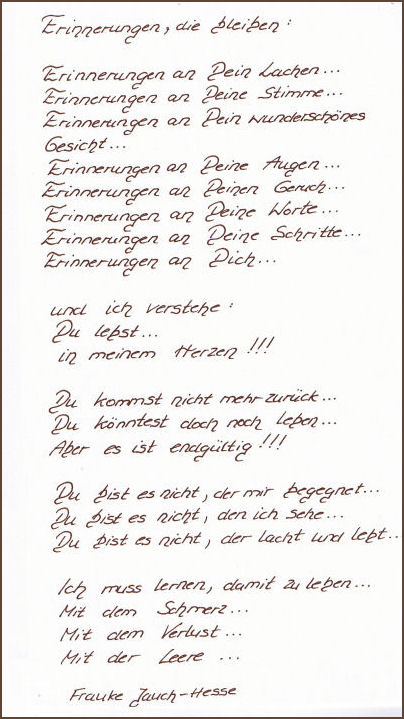 Erinnerungen, die bleiben:
Erinnerungen an Dein Lachen...
Erinnerungen an Deine Stimme...
Erinnerungen an Dein wunderschönes
Gesicht...
Erinnerungen an Deine Augen...
Erinnerungen an Deinen Geruch...
Erinnerungen an Deine Worte...
Erinnerungen an Deine Schritte...
Erinnerungen an Dich...
und ich verstehe:
Du lebst...
in meinem Herzen!!!
Du kommst nicht mehr zurück...
Du könntest doch noch leben...
Aber es ist endgültig!!!
Du bist es nicht, der mir begegnet...
Du bist es nicht, den ich sehe...
Du bist es nicht, der lacht und lebt...
Ich muss lernen, damit zu leben...
Mit dem Schmerz...
Mit dem Verlust...
Mit der Leere ...
Frauke Jauch-Hesse